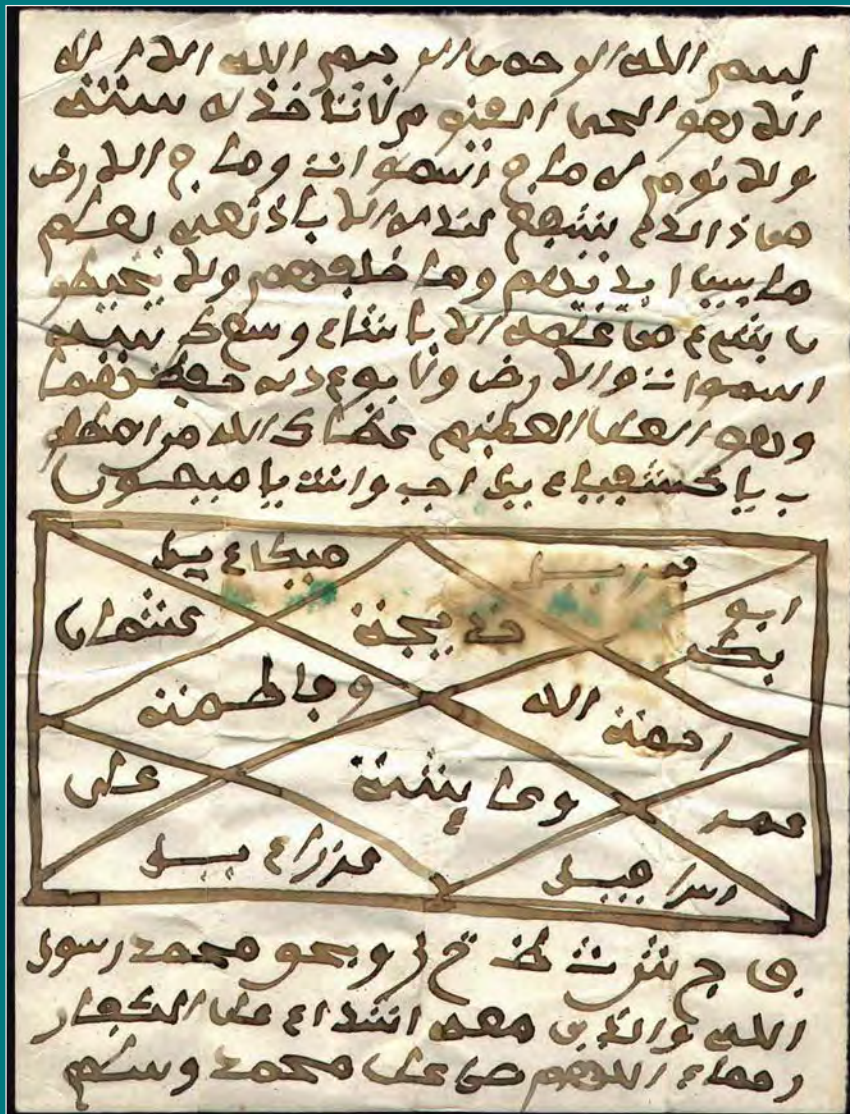 بسم الله الرحمن الرحيم الله لا اله
الا هو الحي القيوم لا تاخذه سنة
ولا نوم له ما في السموات وما في الارض
من ذا الذي يشفع عنده الا باذنه يعلم
ما بين ايديهم وما خلفهم ولا يحيطو
ن بشيء من علمه الا بما شاء وسع كرسيه
السموات والارض ولا يوده حفظهما
وهو العلي العظيم الله
اجب وانت يا ميمون
ميكاءيل
ابو
بكر
خديجة
عثمان
امنة الله
وفاطمة
عمر
وعايشة
على
اسرافيل
عزراءيل
محمد رسول
الله والذين معه اشداء على الكفار
رحماء اللهم صل على محمد وسلم